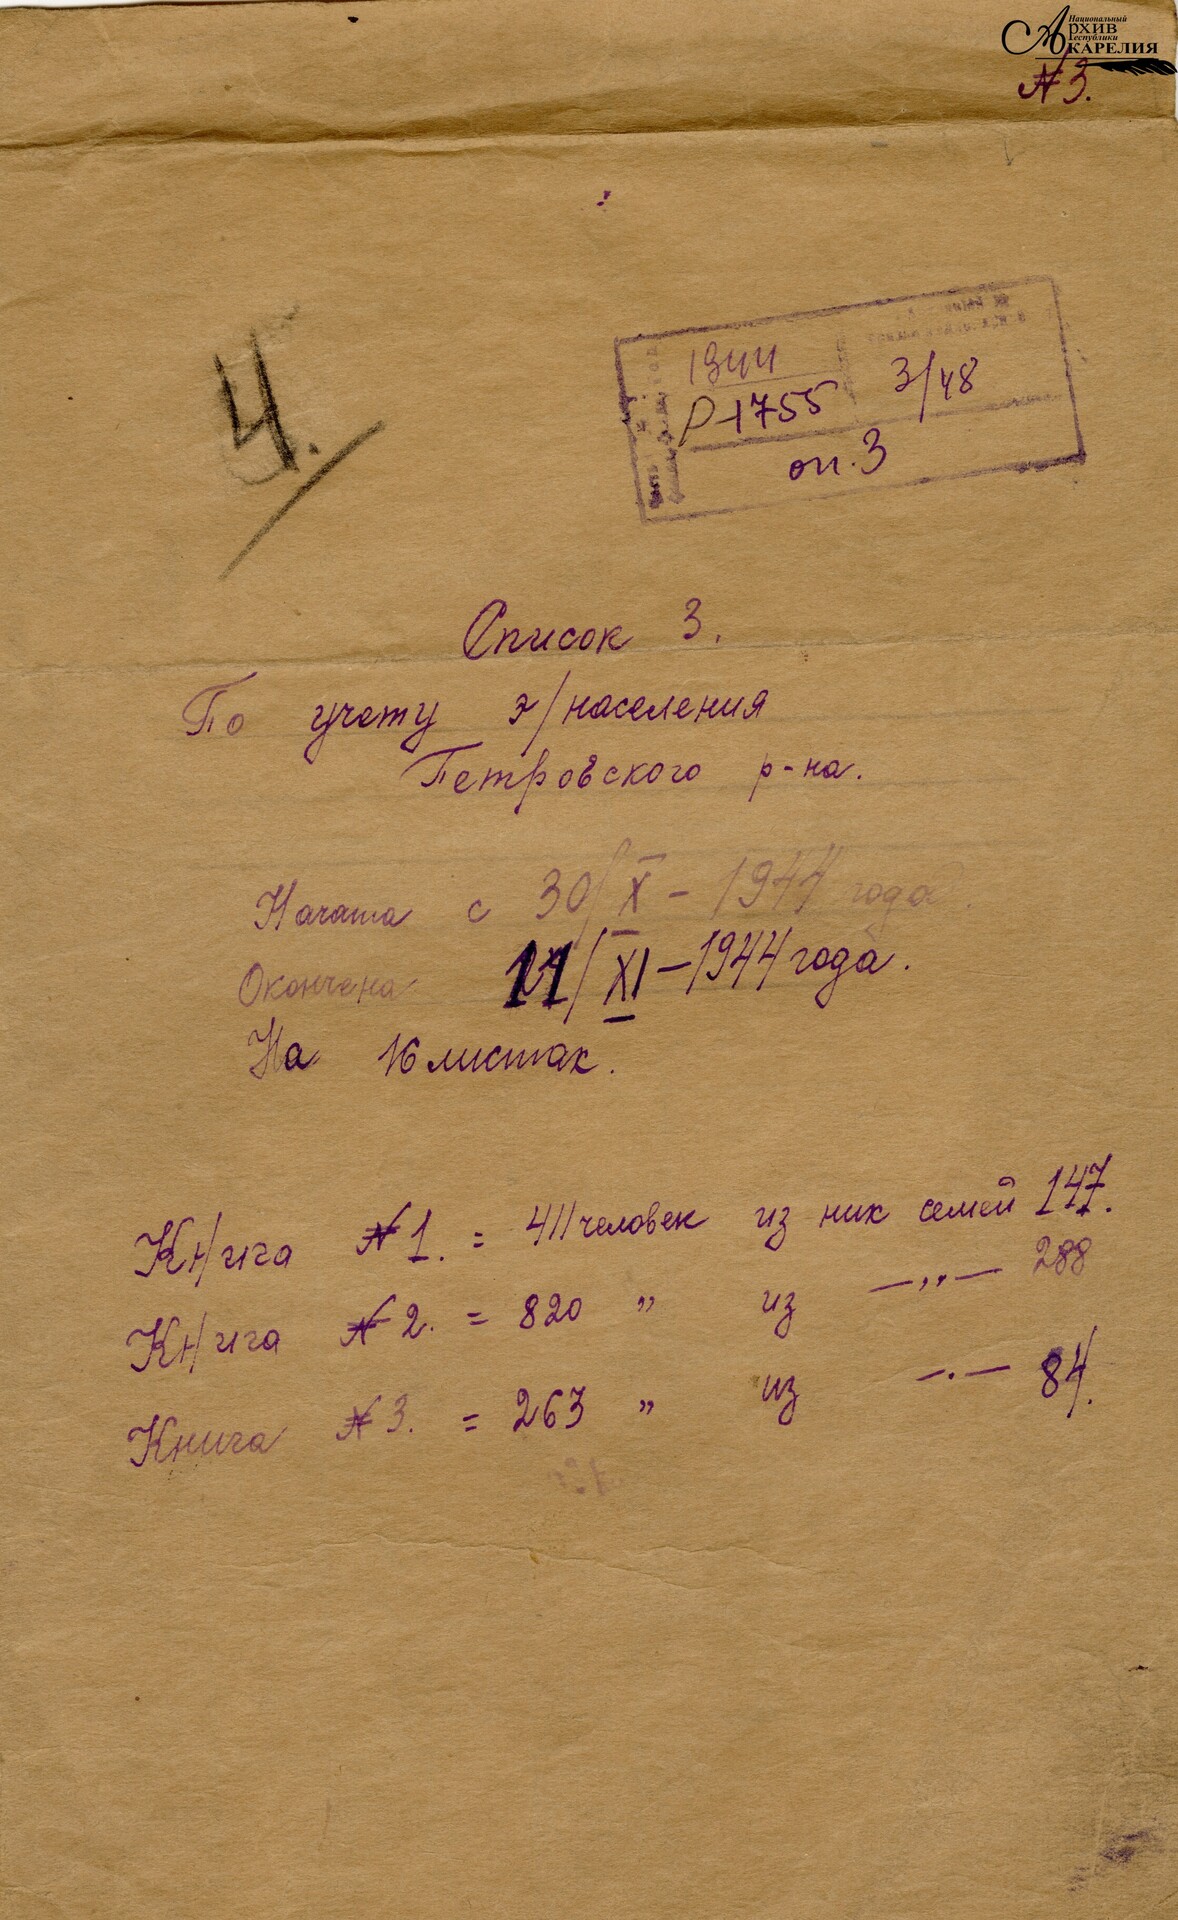 Национальный
Архив
Республики
Карелия
№ 3.
4.
1944
Р-1755
3/48
оп. 3
Список 3.
По учету э/населения
Петровского р-на.
Начата с 30/X - 1944 года.
Окончена 11/XI - 1944 года.
На 16 листах.
Кн/ига № 1. = 411 человек из них семей 147.
Кн/ига № 2. = 820 " из —„— 288
Книга № 3. = 263 " из —.— 84.